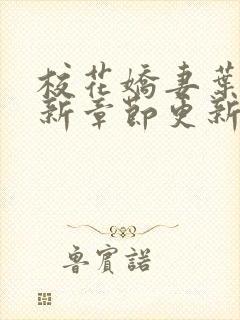 校花嬌妻葉
新章節更新
魯賓諾